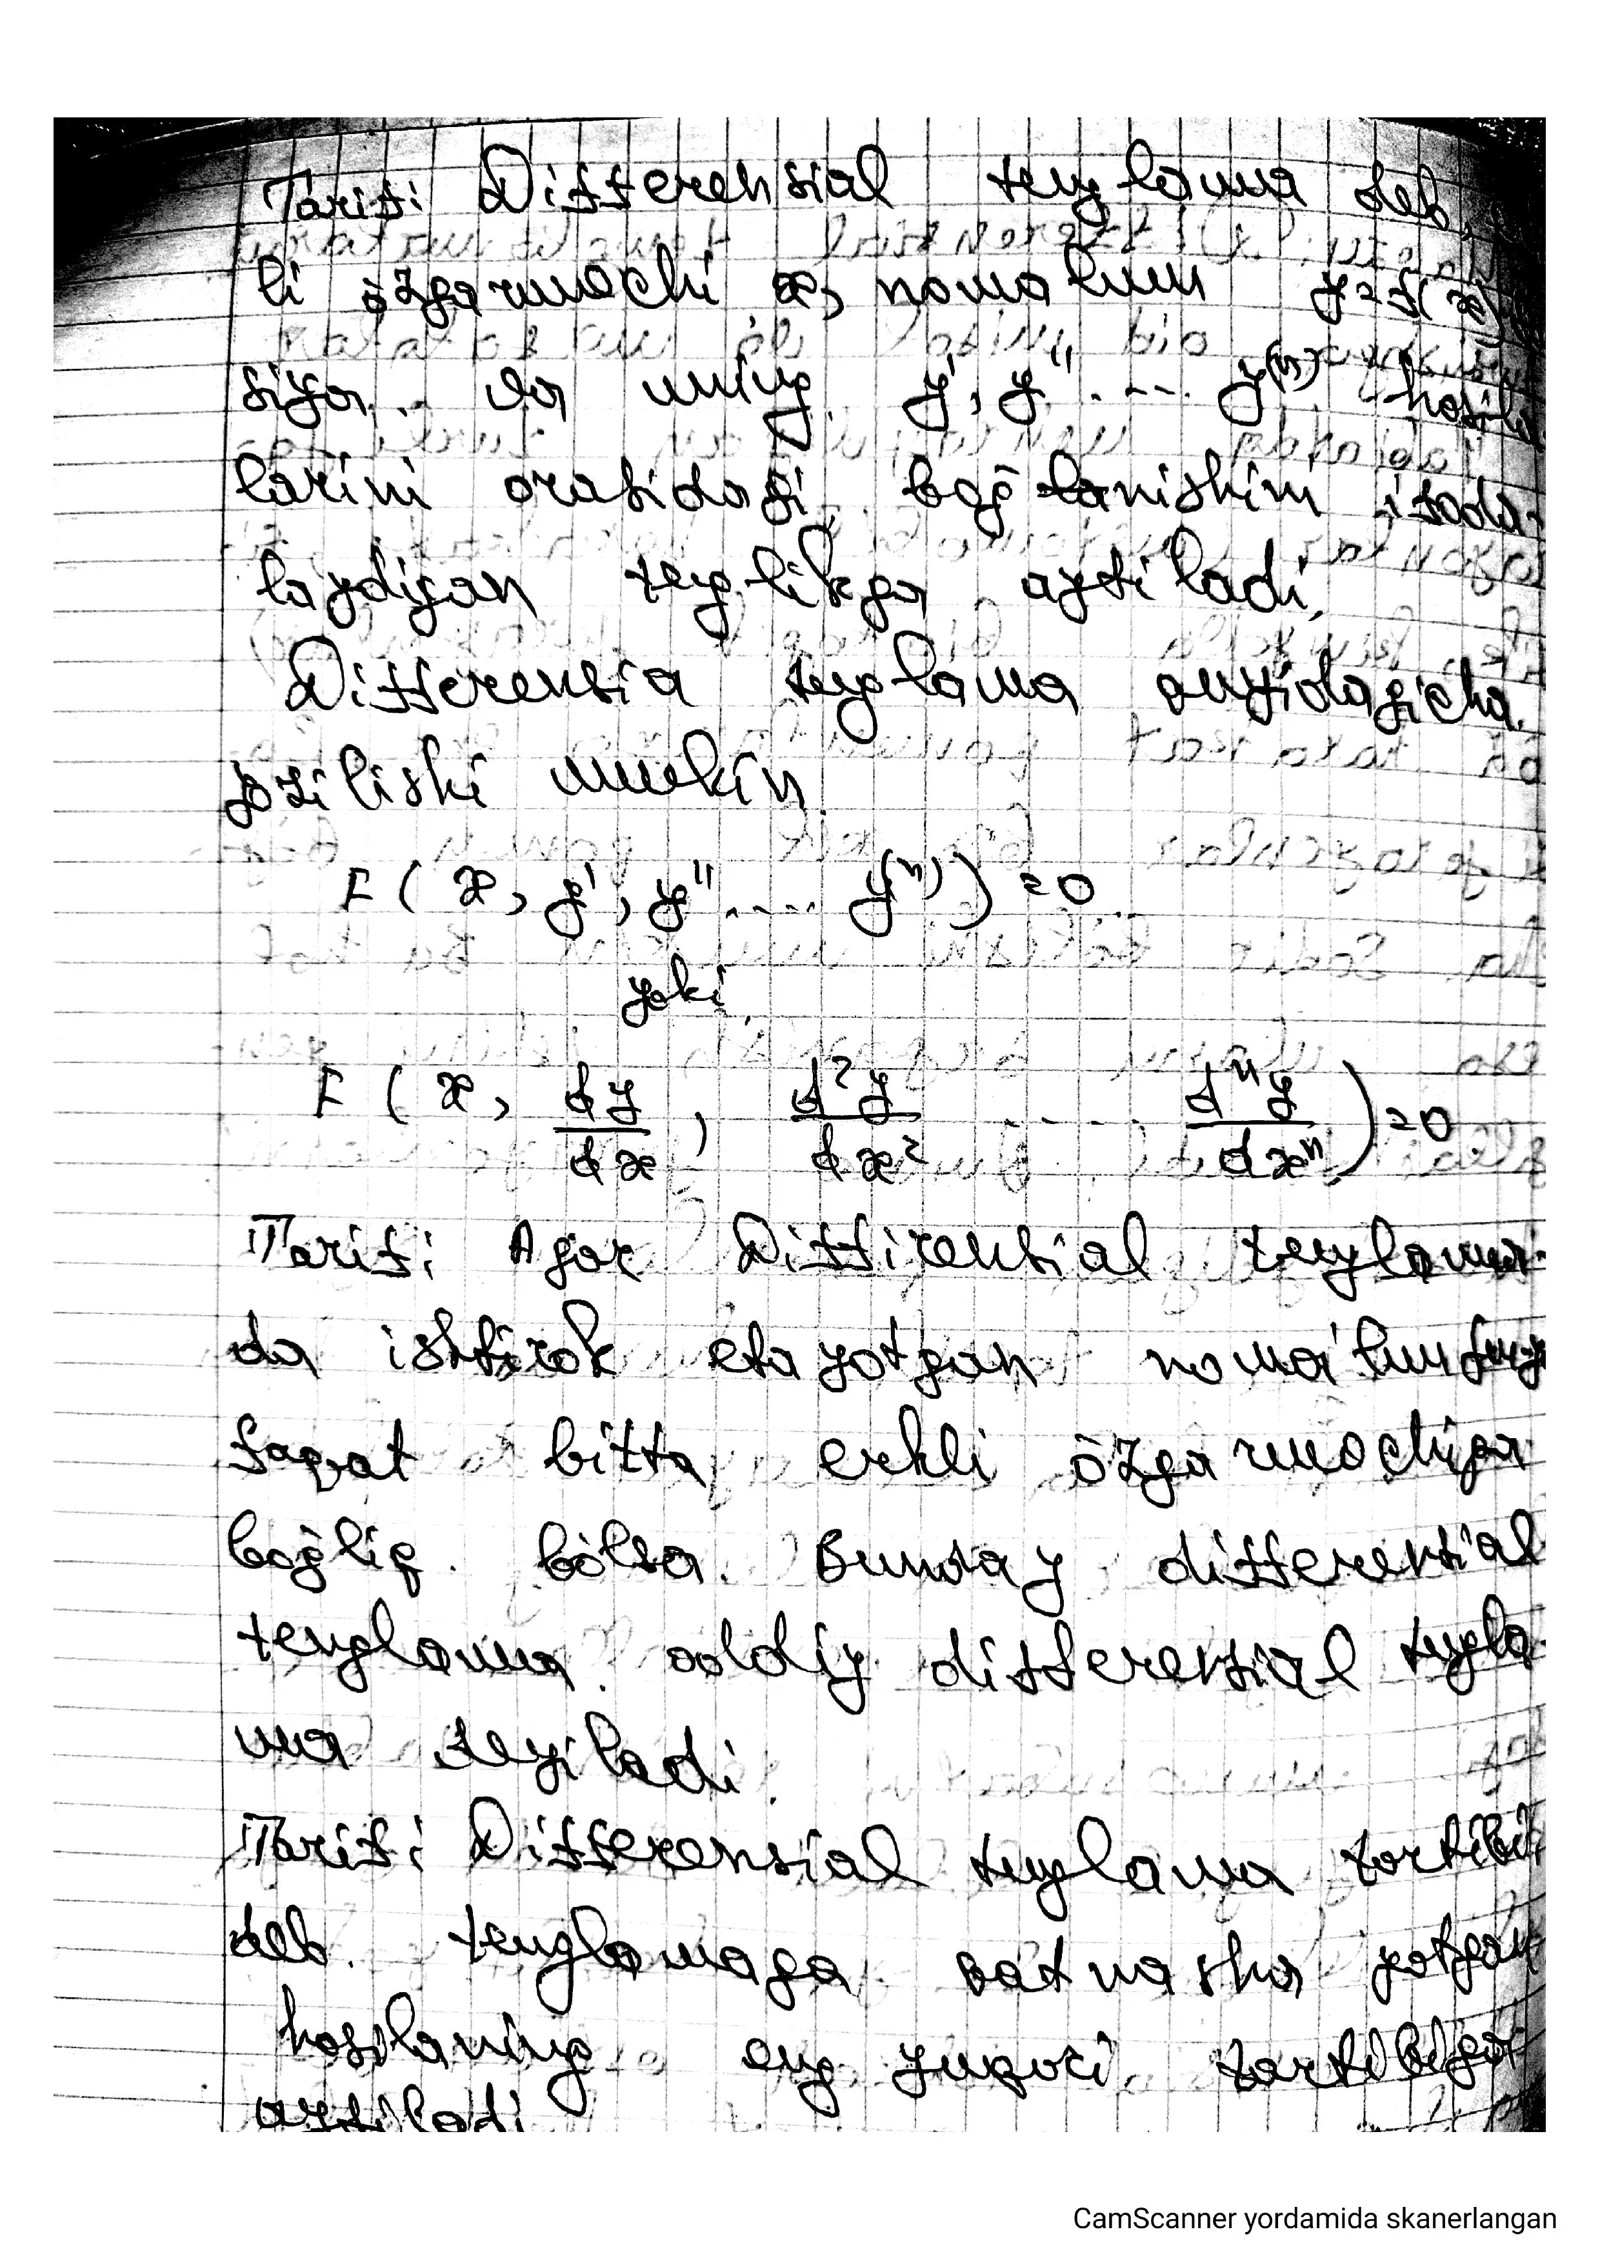 Tarif: Differensial tenglama deb,
li õzgarmachi x, nomalum y=f(x)
siya va uning y', y'' .... y⁽ⁿ⁾ hosila
larini orasidagi bog̃lanishini ifoda-
laydigan tenglikga aytiladi.
Differensia tenglama quyidagicha
yozilishi mumkin.
F(x, y', y'' ..... y⁽ⁿ⁾) = 0
yoki
F(x, dy/dx, d²y/dx² .... dⁿy/dxⁿ) = 0
Tarif: Agar Diffirensial tenglama-
da ishtirok etayotgan noma'lum funk
faqat bitta erkli õzgarmochiga
bog̃liq bõlsa. Bunday differensial
tenglama oddiy differensial tengla
ma deyiladi.
Tarif: Differensial tenglama tartibi
deb tenglamaga qatnasha yotgan
hosilaning eng yuqori tartibiga
aytiladi
CamScanner yordamida skanerlangan